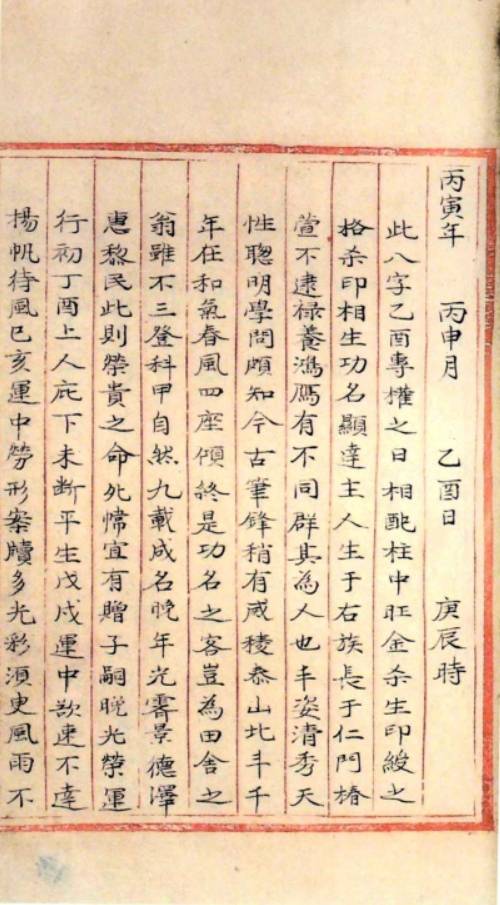 丙寅年 丙申月 乙酉日 庚辰時
此八字乙酉專權之日相配柱中旺金杀生印綬之
格杀印相生功名顯達主人生于右族長于仁門椿
萱不逮祿養鴻鴈有不同群其為人也丰姿清秀天
性聰明學問頗知今古筆鋒稍有威稜泰山北斗千
年在和氣春風四座傾終是功名之客豈為田舍之
翁雖不三登科甲自然九載成名晚年光霽景德澤
惠黎民此則榮貴之命死幃宜有贈子嗣晚光榮運
行初丁酉上人庇下未断平生戊戌運中欲速不達
揚帆待風巳亥運中勞形案牘多光彩須更風雨不